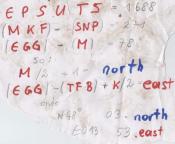 EPSUTS = 1688
(MKF) - SNP) = 271
(EGG) - (M) = 78
so:
M/2 + 1 = north
(EGG) - (TFB) + K/2 = east
N48° 03. north
E013 53. east